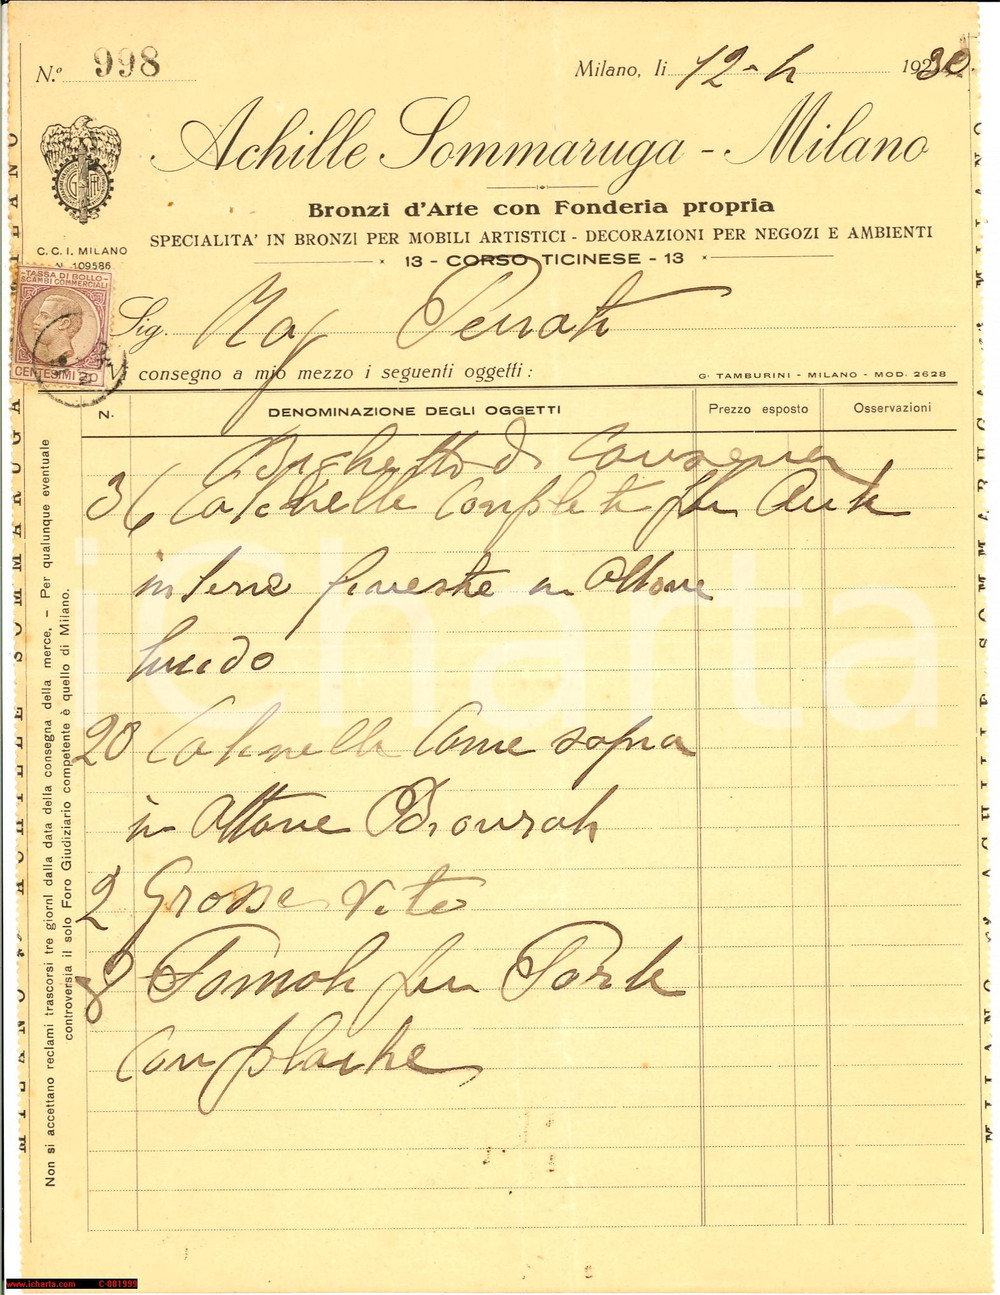 N.° 998
Milano, li 12 - 4 1930.
Achille Sommaruga - Milano
Bronzi d'Arte con Fonderia propria
SPECIALITA' IN BRONZI PER MOBILI ARTISTICI - DECORAZIONI PER NEGOZI E AMBIENTI
13 - CORSO TICINESE - 13
C. C. I. MILANO
N. 109586
TASSA DI BOLLO
SCAMBI COMMERCIALI
CENTESIMI 20
Sig. Rag
Vi consegno a mio mezzo i seguenti oggetti:
G. TAMBURINI - MILANO - MOD. 2628
N. DENOMINAZIONE DEGLI OGGETTI Prezzo esposto Osservazioni
di Consegna
36 complete per Ante
interne finestre in Ottone
lucido
20 come sopra
in Ottone Bronzato
2 Grosse Viti
8 Pomoli per Porte
con placche
Non si accettano reclami trascorsi tre giorni dalla data della consegna della merce. - Per qualunque eventuale
controversia il solo Foro Giudiziario competente è quello di Milano.
iCharta
www.icharta.com C-001999